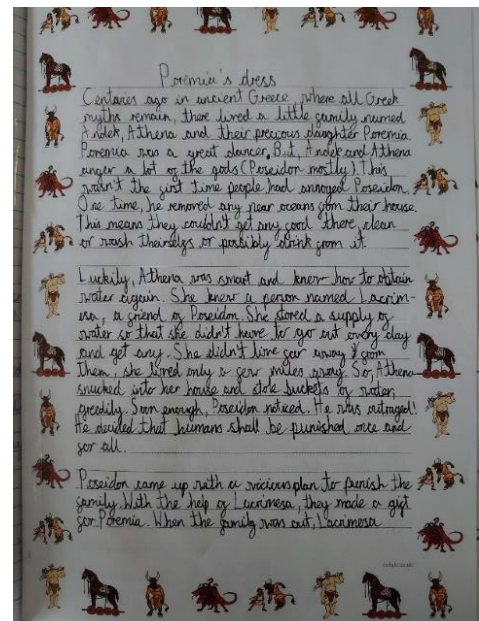 Poremia's dress
Centaries ago in ancient Greece, where all Greek
myths remain, there lived a little family named
Andek, Athena and their precious daughter Poremia.
Poremia was a great dancer. But, Andek and Athena
anger a lot of the gods (Poseidon mostly). This
wasn't the first time people had annoyed Poseidon.
One time, he removed any near oceans from their house.
This means they couldn't get any food there, clean
or wash theirselfs or possibly drink from it.
Luckily, Athena was smart and knew how to obtain
water again. She knew a person named Lacrim-
esa, a friend of Poseidon. She stored a supply of
water so that she didn't have to go out every day
and get any. She didn't live far away from
them, she lived only a few miles away. So, Athena
snucked into her house and stole buckets of water,
greedily. Soon enough, Poseidon noticed. He was outraged!
He decided that humans shall be punished once and
for all.
Poseidon came up with a vicious plan to punish the
family. With the help of Lacrimesa, they made a gift
for Poremia. When the family was out, Lacrimesa